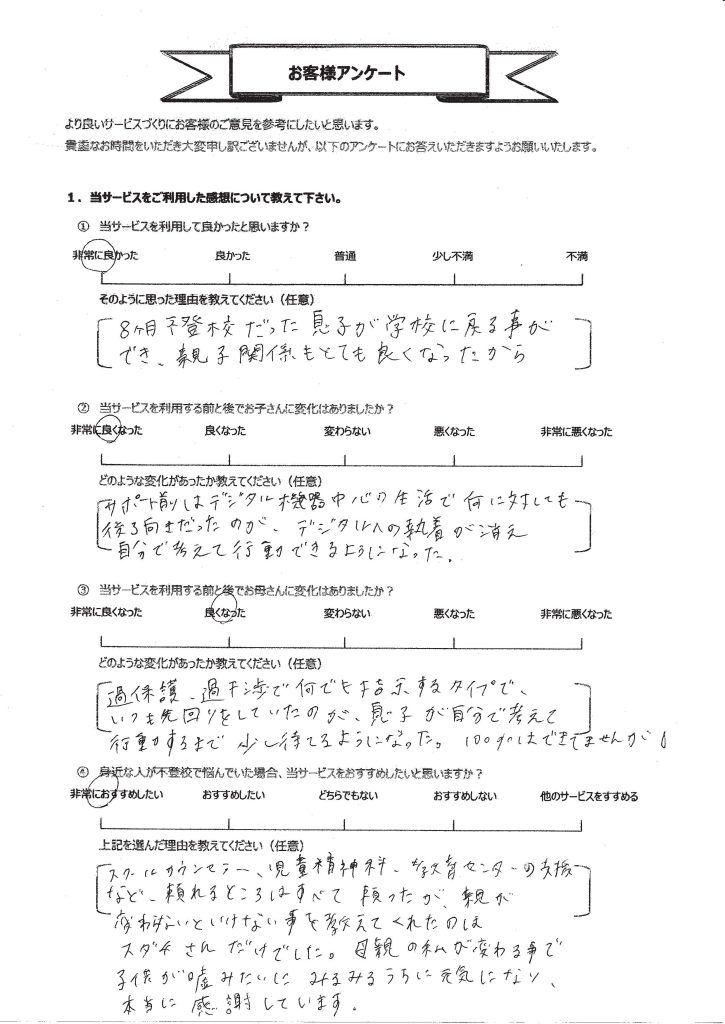 お客様アンケート
より良いサービスづくりにお客様のご意見を参考にしたいと思います。
貴重なお時間をいただき大変申し訳ございませんが、以下のアンケートにお答えいただきますようお願いいたします。
1．当サービスをご利用した感想について教えて下さい。
① 当サービスを利用して良かったと思いますか？
非常に良かった 良かった 普通 少し不満 不満
そのように思った理由を教えてください（任意）
8ヶ月不登校だった息子が学校に戻る事が
でき、親子関係もとても良くなったから
② 当サービスを利用する前と後でお子さんに変化はありましたか？
非常に良くなった 良くなった 変わらない 悪くなった 非常に悪くなった
どのような変化があったか教えてください（任意）
サポート前はデジタル機器中心の生活で何に対しても
後ろ向きだったのが、デジタルへの執着が消え
自分で考えて行動できるようになった。
③ 当サービスを利用する前と後でお母さんに変化はありましたか？
非常に良くなった 良くなった 変わらない 悪くなった 非常に悪くなった
どのような変化があったか教えてください（任意）
過保護、過干渉で何でも指示するタイプで、
いつも先回りをしていたのが、息子が自分で考えて
行動するまで少し待てるようになった。100%はできてませんが
④ 身近な人が不登校で悩んでいた場合、当サービスをおすすめしたいと思いますか？
非常におすすめしたい おすすめしたい どちらでもない おすすめしない 他のサービスをすすめる
上記を選んだ理由を教えてください（任意）
スクールカウンセラー、児童精神科、教育センターの支援
など、頼れるところはすべて頼ったが、親が
変わらないといけない事を教えてくれたのは
スダチさんだけでした。母親の私が変わる事で
子供が嘘みたいにみるみるうちに元気になり、
本当に感謝しています。